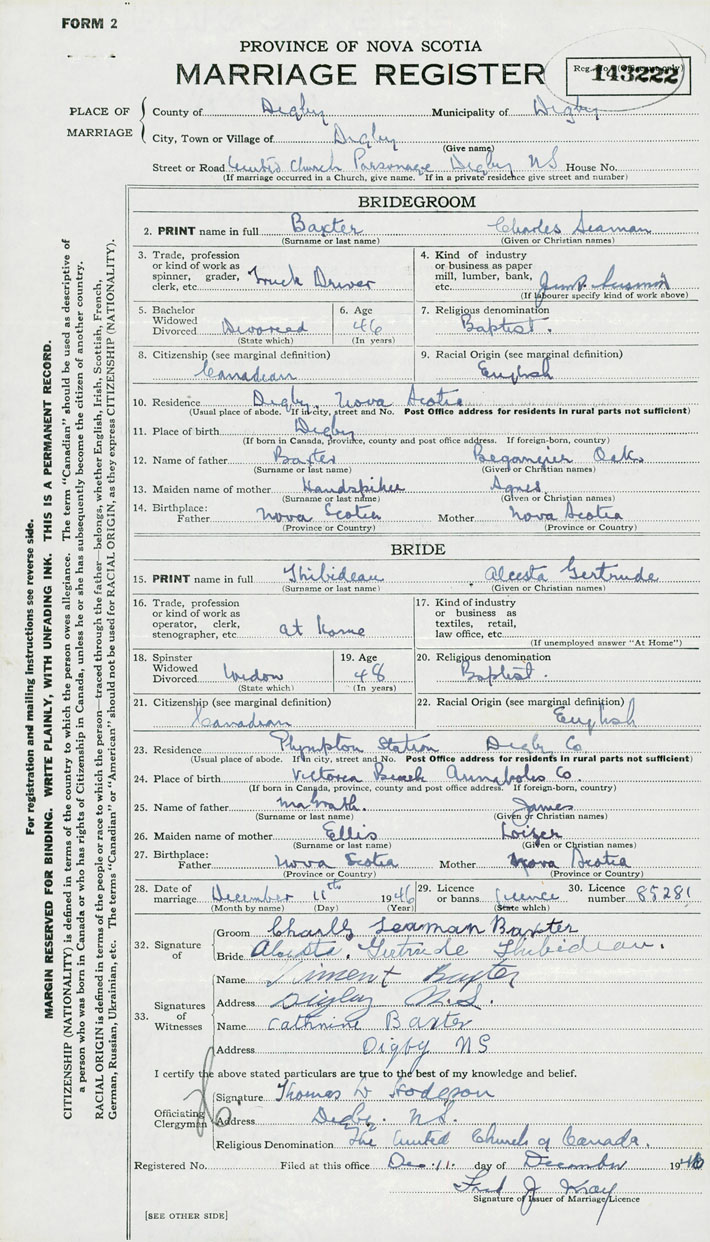 FORM 2
PROVINCE OF NOVA SCOTIA
MARRIAGE REGISTER
143222
PLACE OF MARRIAGE
County of Digby Municipality of Digby
City, Town or Village of Digby
(Give name)
Street or Road United Church Parsonage Digby NS House No.
(If marriage occurred in a Church, give name. If in a private residence give street and number)
BRIDEGROOM
2. PRINT name in full Baxter Charles Seaman
(Surname or last name) (Given or Christian names)
3. Trade, profession or kind of work as spinner, grader, clerk, etc. Truck Driver
4. Kind of industry or business as paper mill, lumber, bank, etc.
(If labourer specify kind of work above)
5. Bachelor Widowed Divorced Divorced
(State which)
6. Age 46
(In years)
7. Religious denomination
Baptist.
8. Citizenship (see marginal definition)
Canadian
9. Racial Origin (see marginal definition)
English
10. Residence Digby, Nova Scotia
(Usual place of abode. If in city, street and No. Post Office address for residents in rural parts not sufficient)
11. Place of birth Digby
(If born in Canada, province, county and post office address. If foreign-born, country)
12. Name of father Baxter Oaks
(Surname or last name) (Given or Christian names)
13. Maiden name of mother Handspiker Agnes
(Surname or last name) (Given or Christian names)
14. Birthplace: Father Nova Scotia Mother Nova Scotia
(Province or Country) (Province or Country)
BRIDE
15. PRINT name in full Thibideau Alcesta Gertrude
(Surname or last name) (Given or Christian names)
16. Trade, profession or kind of work as operator, clerk, stenographer, etc. at home
17. Kind of industry or business as textiles, retail, law office, etc.
(If unemployed answer "At Home")
18. Spinster Widowed Divorced Widow
(State which)
19. Age 48
(In years)
20. Religious denomination
Baptist.
21. Citizenship (see marginal definition)
Canadian
22. Racial Origin (see marginal definition)
English
23. Residence Plympton Station Digby Co
(Usual place of abode. If in city, street and No. Post Office address for residents in rural parts not sufficient)
24. Place of birth Victoria Beach Annapolis Co.
(If born in Canada, province, county and post office address. If foreign-born, country)
25. Name of father James
(Surname or last name) (Given or Christian names)
26. Maiden name of mother Ellis Loizer
(Surname or last name) (Given or Christian names)
27. Birthplace: Father Nova Scotia Mother Nova Scotia
(Province or Country) (Province or Country)
28. Date of marriage December 11th 1946
(Month by name) (Day) (Year)
29. Licence or banns Licence
(State which)
30. Licence number 85281
32. Signature of
Groom Charles Seaman Baxter
Bride Gertrude Thibideau.
33. Signatures of Witnesses
Name Baxter
Address Digby N.S.
Name Cathrine Baxter
Address Digby NS
I certify the above stated particulars are true to the best of my knowledge and belief.
Officiating Clergyman
Signature Thomas W Hodgson
Address Digby. N.S.
Religious Denomination The United Church of Canada.
Registered No. Filed at this office Dec. 11. day of December 1946
Fred J
Signature of Issuer of Marriage Licence
[SEE OTHER SIDE]
For registration and mailing instructions see reverse side.
MARGIN RESERVED FOR BINDING. WRITE PLAINLY, WITH UNFADING INK. THIS IS A PERMANENT RECORD.
CITIZENSHIP (NATIONALITY) is defined in terms of the country to which the person owes allegiance. The term "Canadian" should be used as descriptive of
a person who was born in Canada or who has rights of Citizenship in Canada, unless he or she has subsequently become the citizen of another country.
RACIAL ORIGIN is defined in terms of the people or race to which the person—traced through the father—belongs, whether English, Irish, Scottish, French,
German, Russian, Ukrainian, etc. The terms "Canadian" or "American" should not be used for RACIAL ORIGIN, as they express CITIZENSHIP (NATIONALITY).